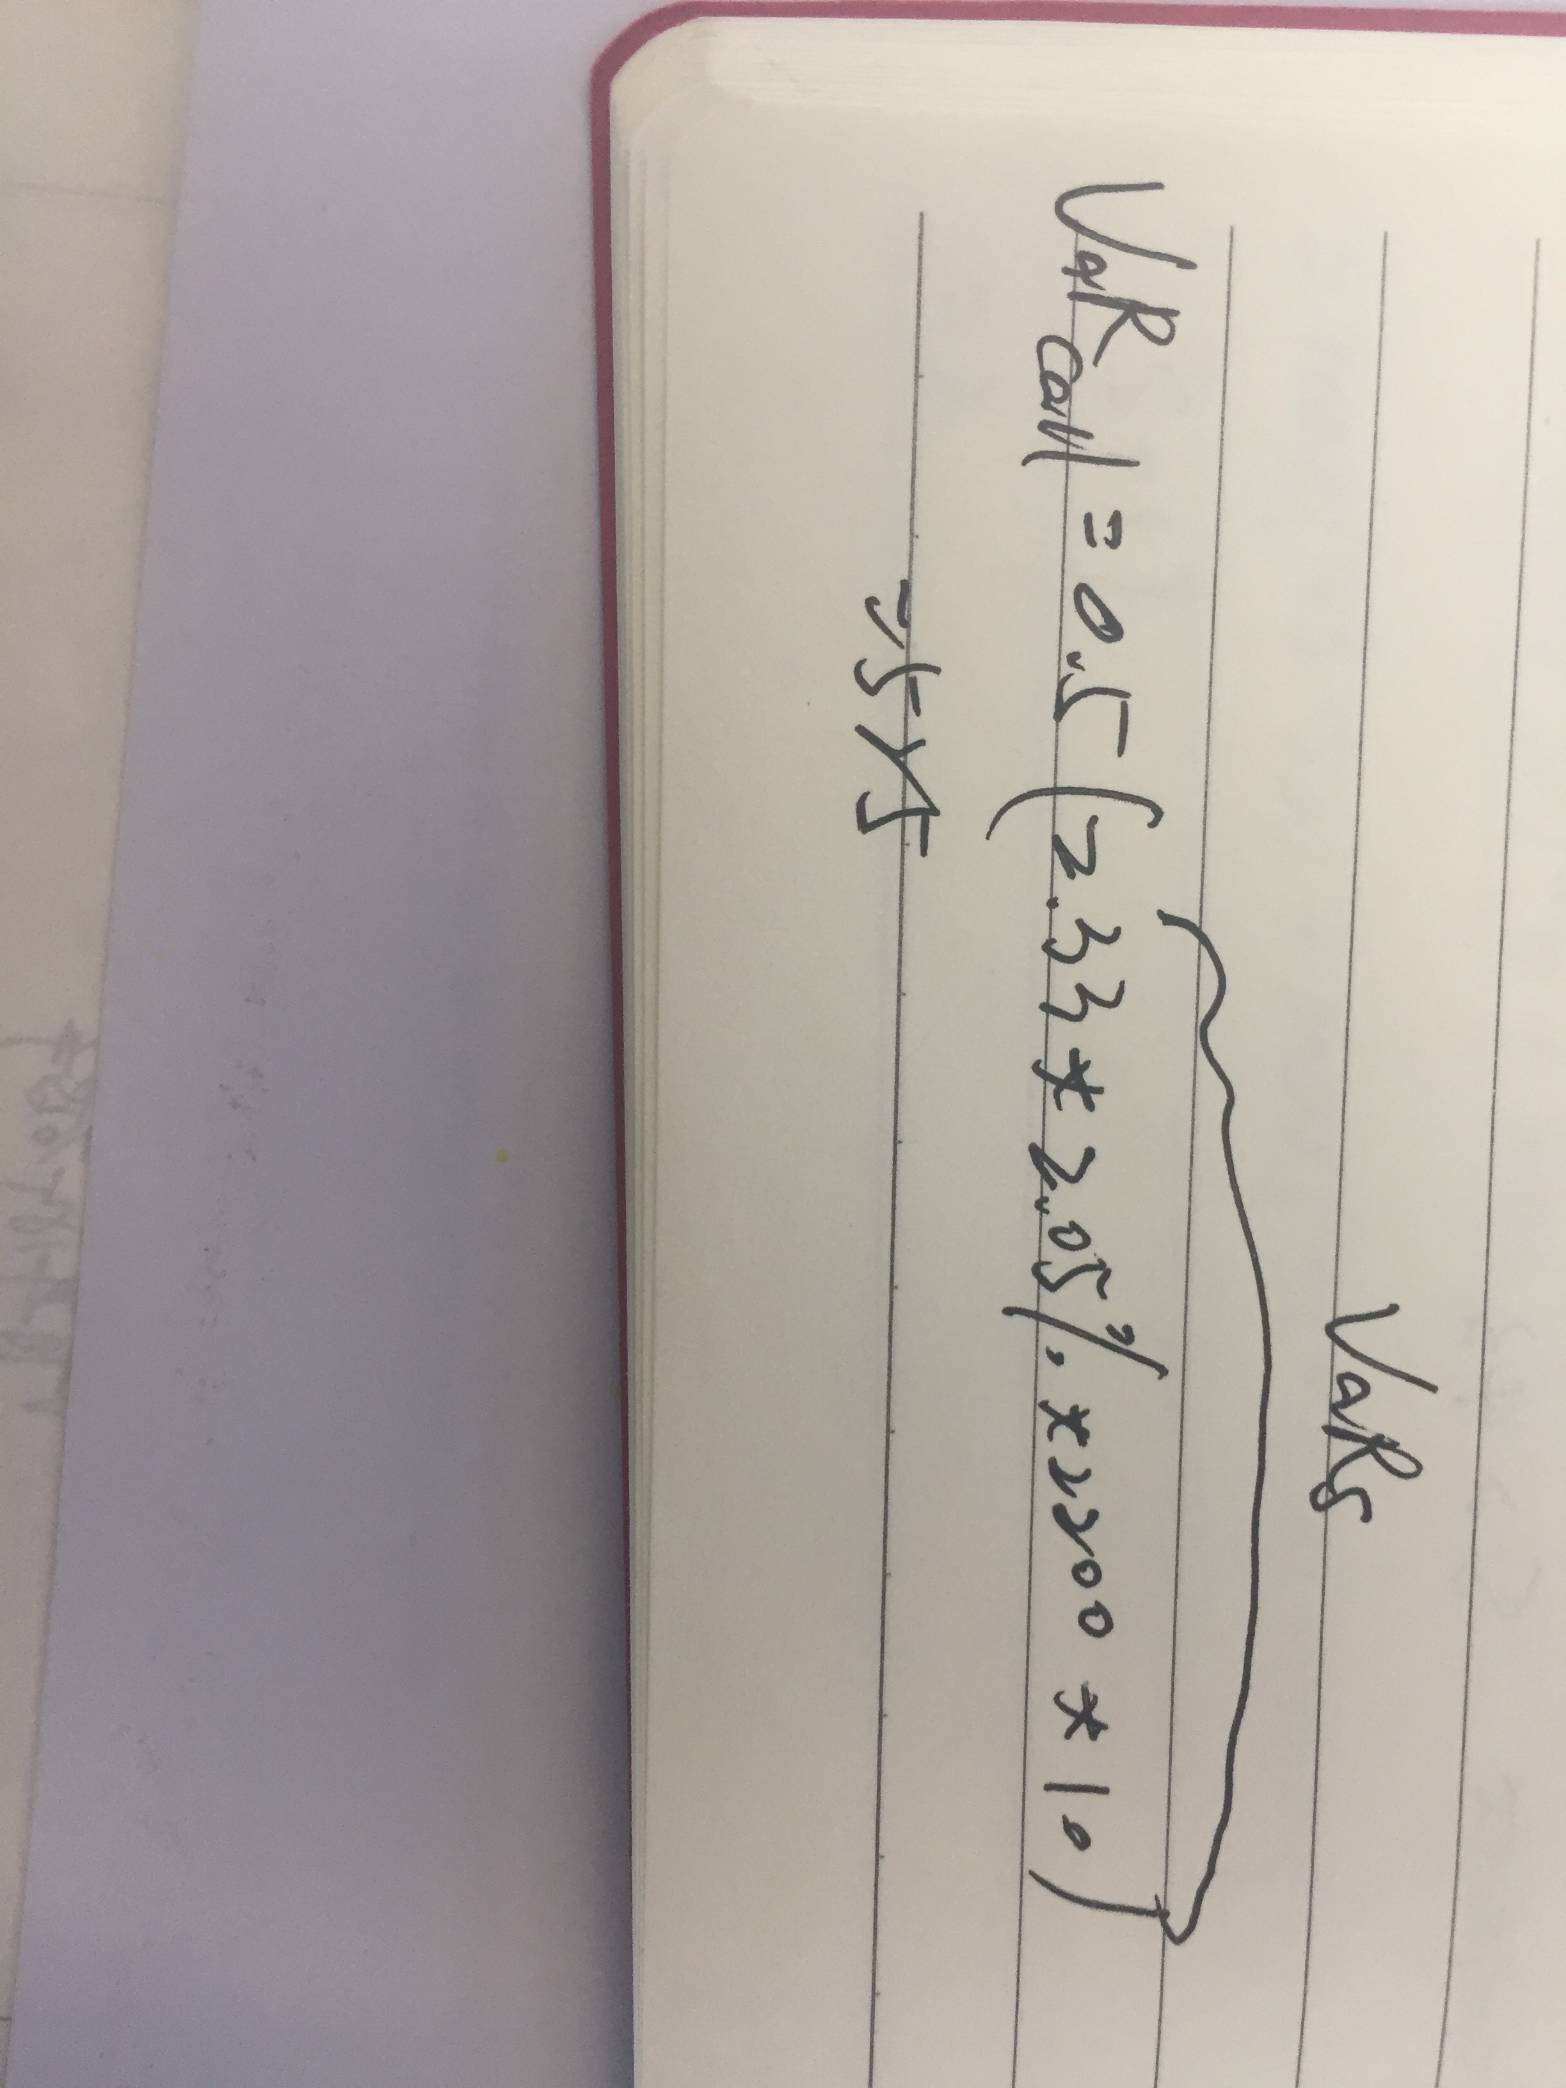 VaRs
VaRcall = 0.5 (2.33 * 2.05% * 2200 * 10)